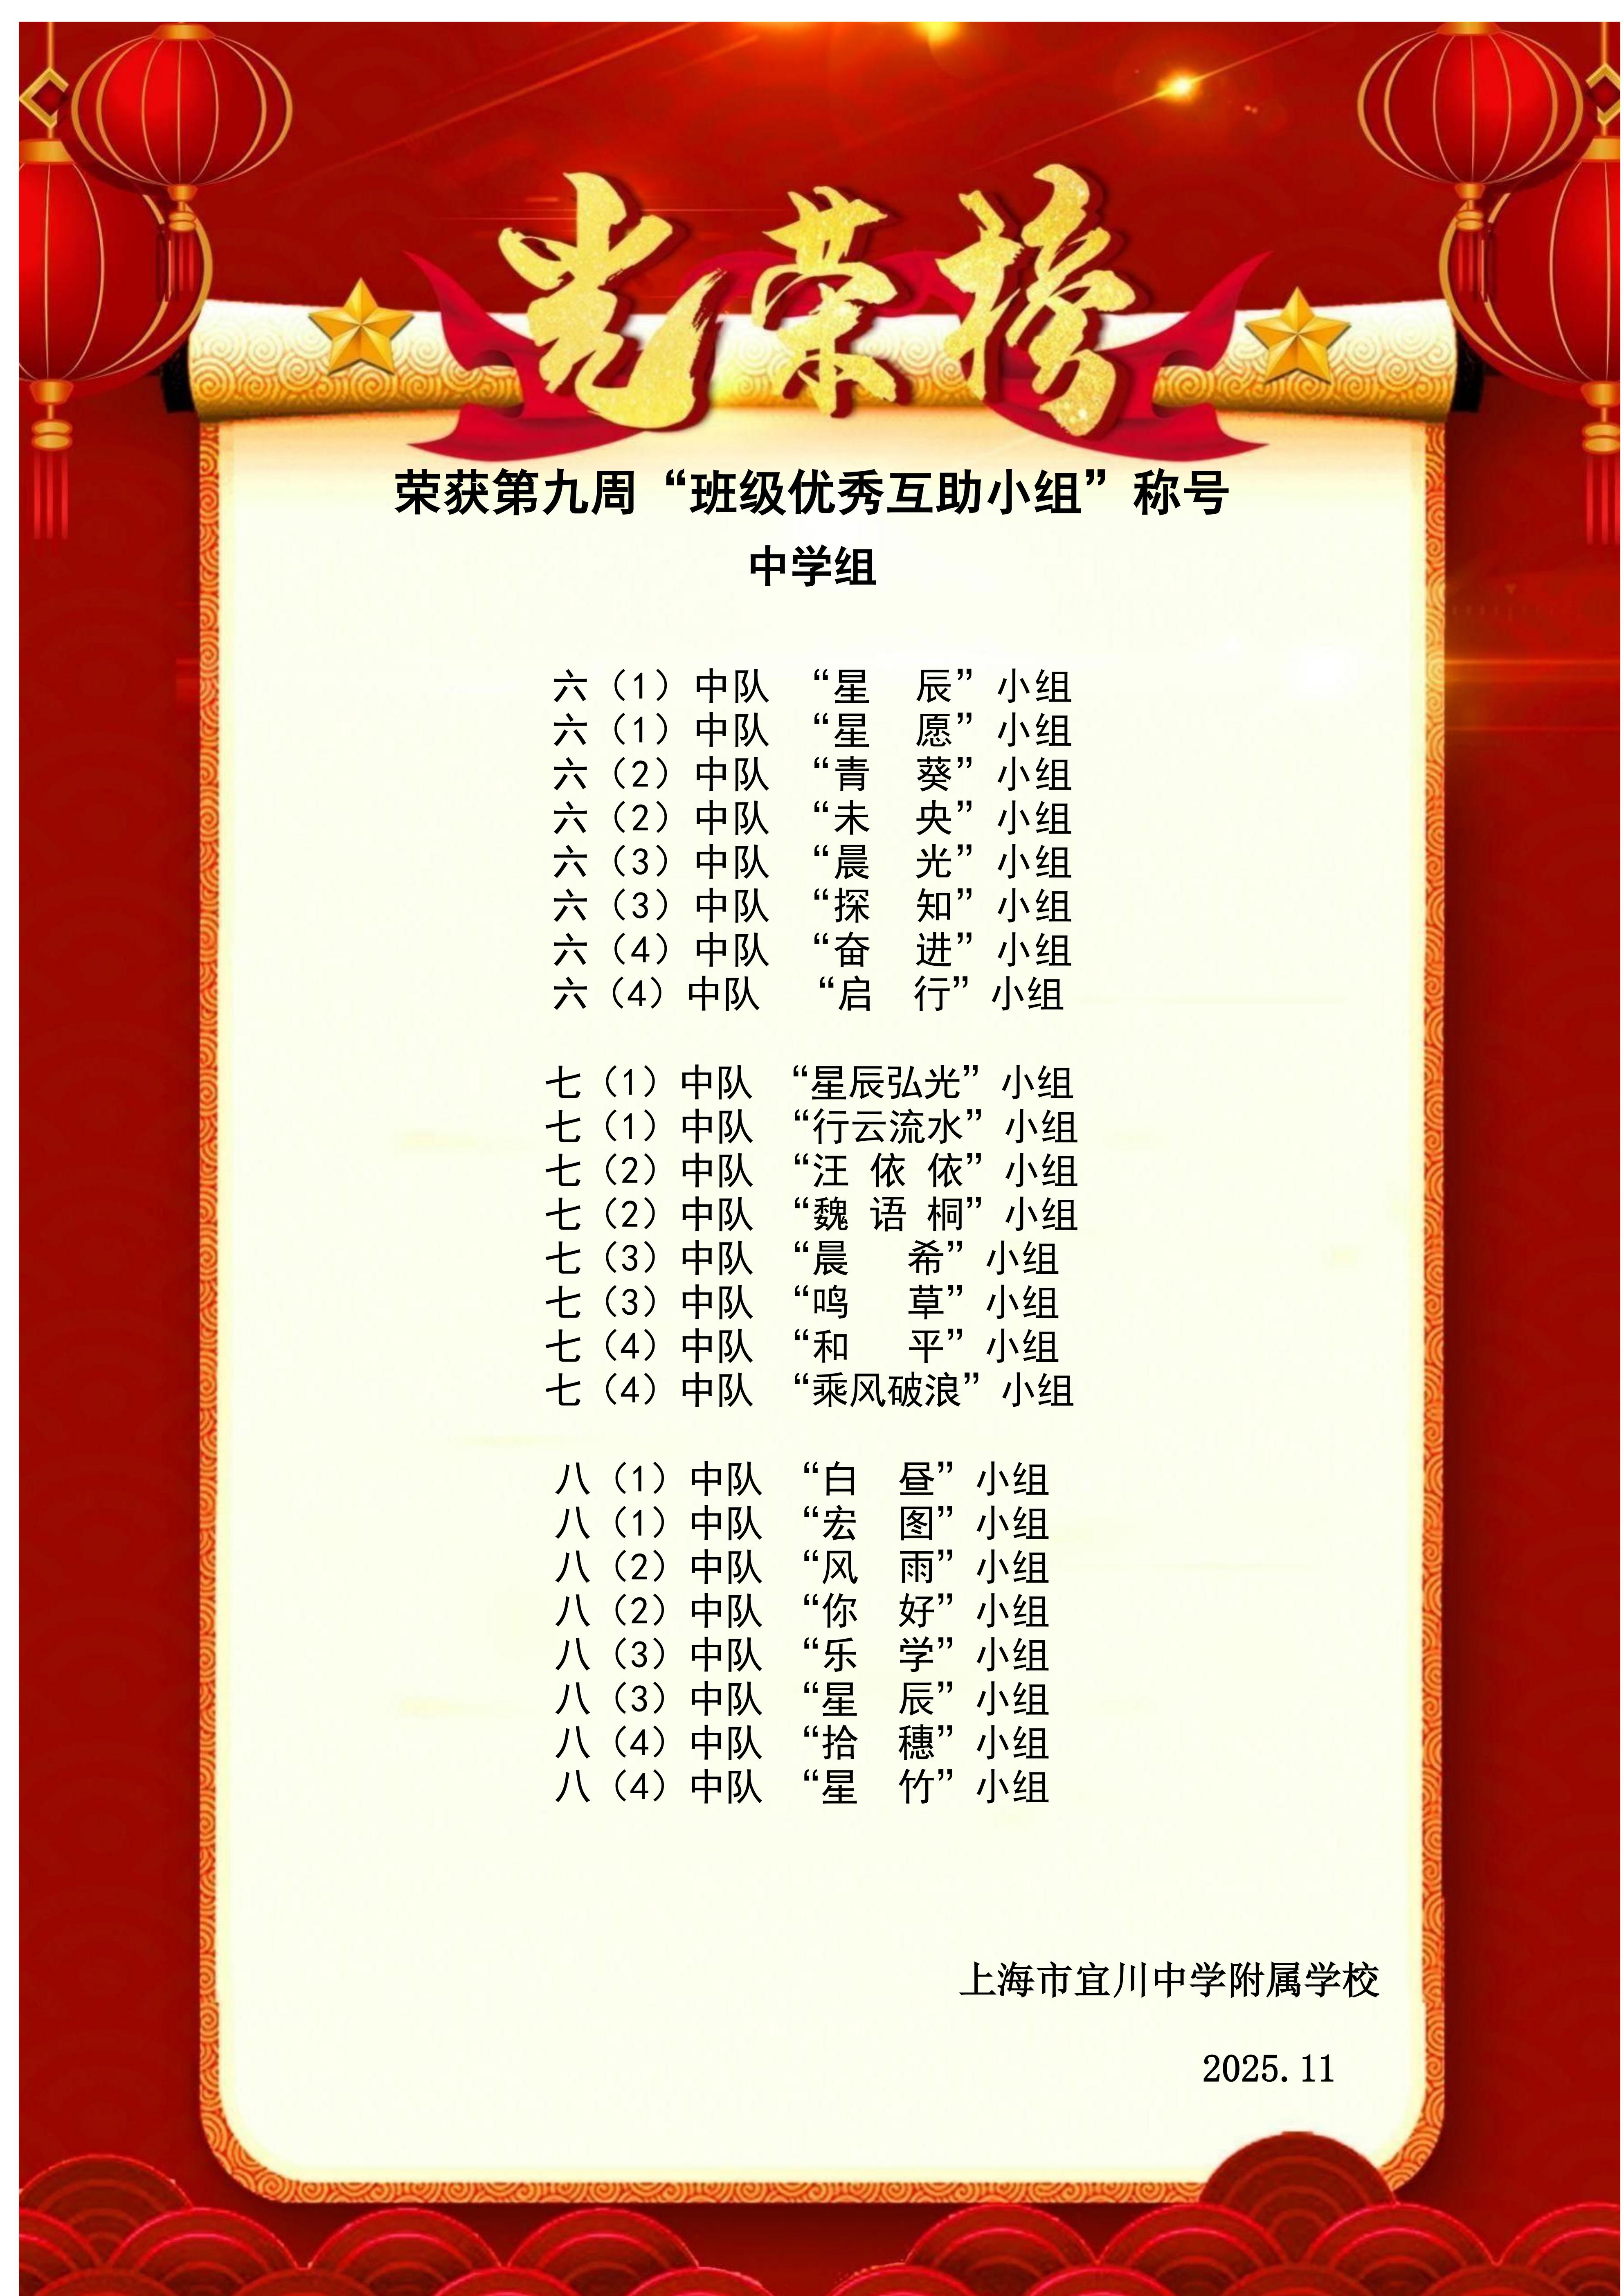 光荣榜
荣获第九周“班级优秀互助小组”称号
中学组
六（1）中队 “星 辰”小组
六（1）中队 “星 愿”小组
六（2）中队 “青 葵”小组
六（2）中队 “未 央”小组
六（3）中队 “晨 光”小组
六（3）中队 “探 知”小组
六（4）中队 “奋 进”小组
六（4）中队 “启 行”小组
七（1）中队 “星辰弘光”小组
七（1）中队 “行云流水”小组
七（2）中队 “汪 依 依”小组
七（2）中队 “魏 语 桐”小组
七（3）中队 “晨 希”小组
七（3）中队 “鸣 草”小组
七（4）中队 “和 平”小组
七（4）中队 “乘风破浪”小组
八（1）中队 “白 昼”小组
八（1）中队 “宏 图”小组
八（2）中队 “风 雨”小组
八（2）中队 “你 好”小组
八（3）中队 “乐 学”小组
八（3）中队 “星 辰”小组
八（4）中队 “拾 穗”小组
八（4）中队 “星 竹”小组
上海市宜川中学附属学校
2025.11